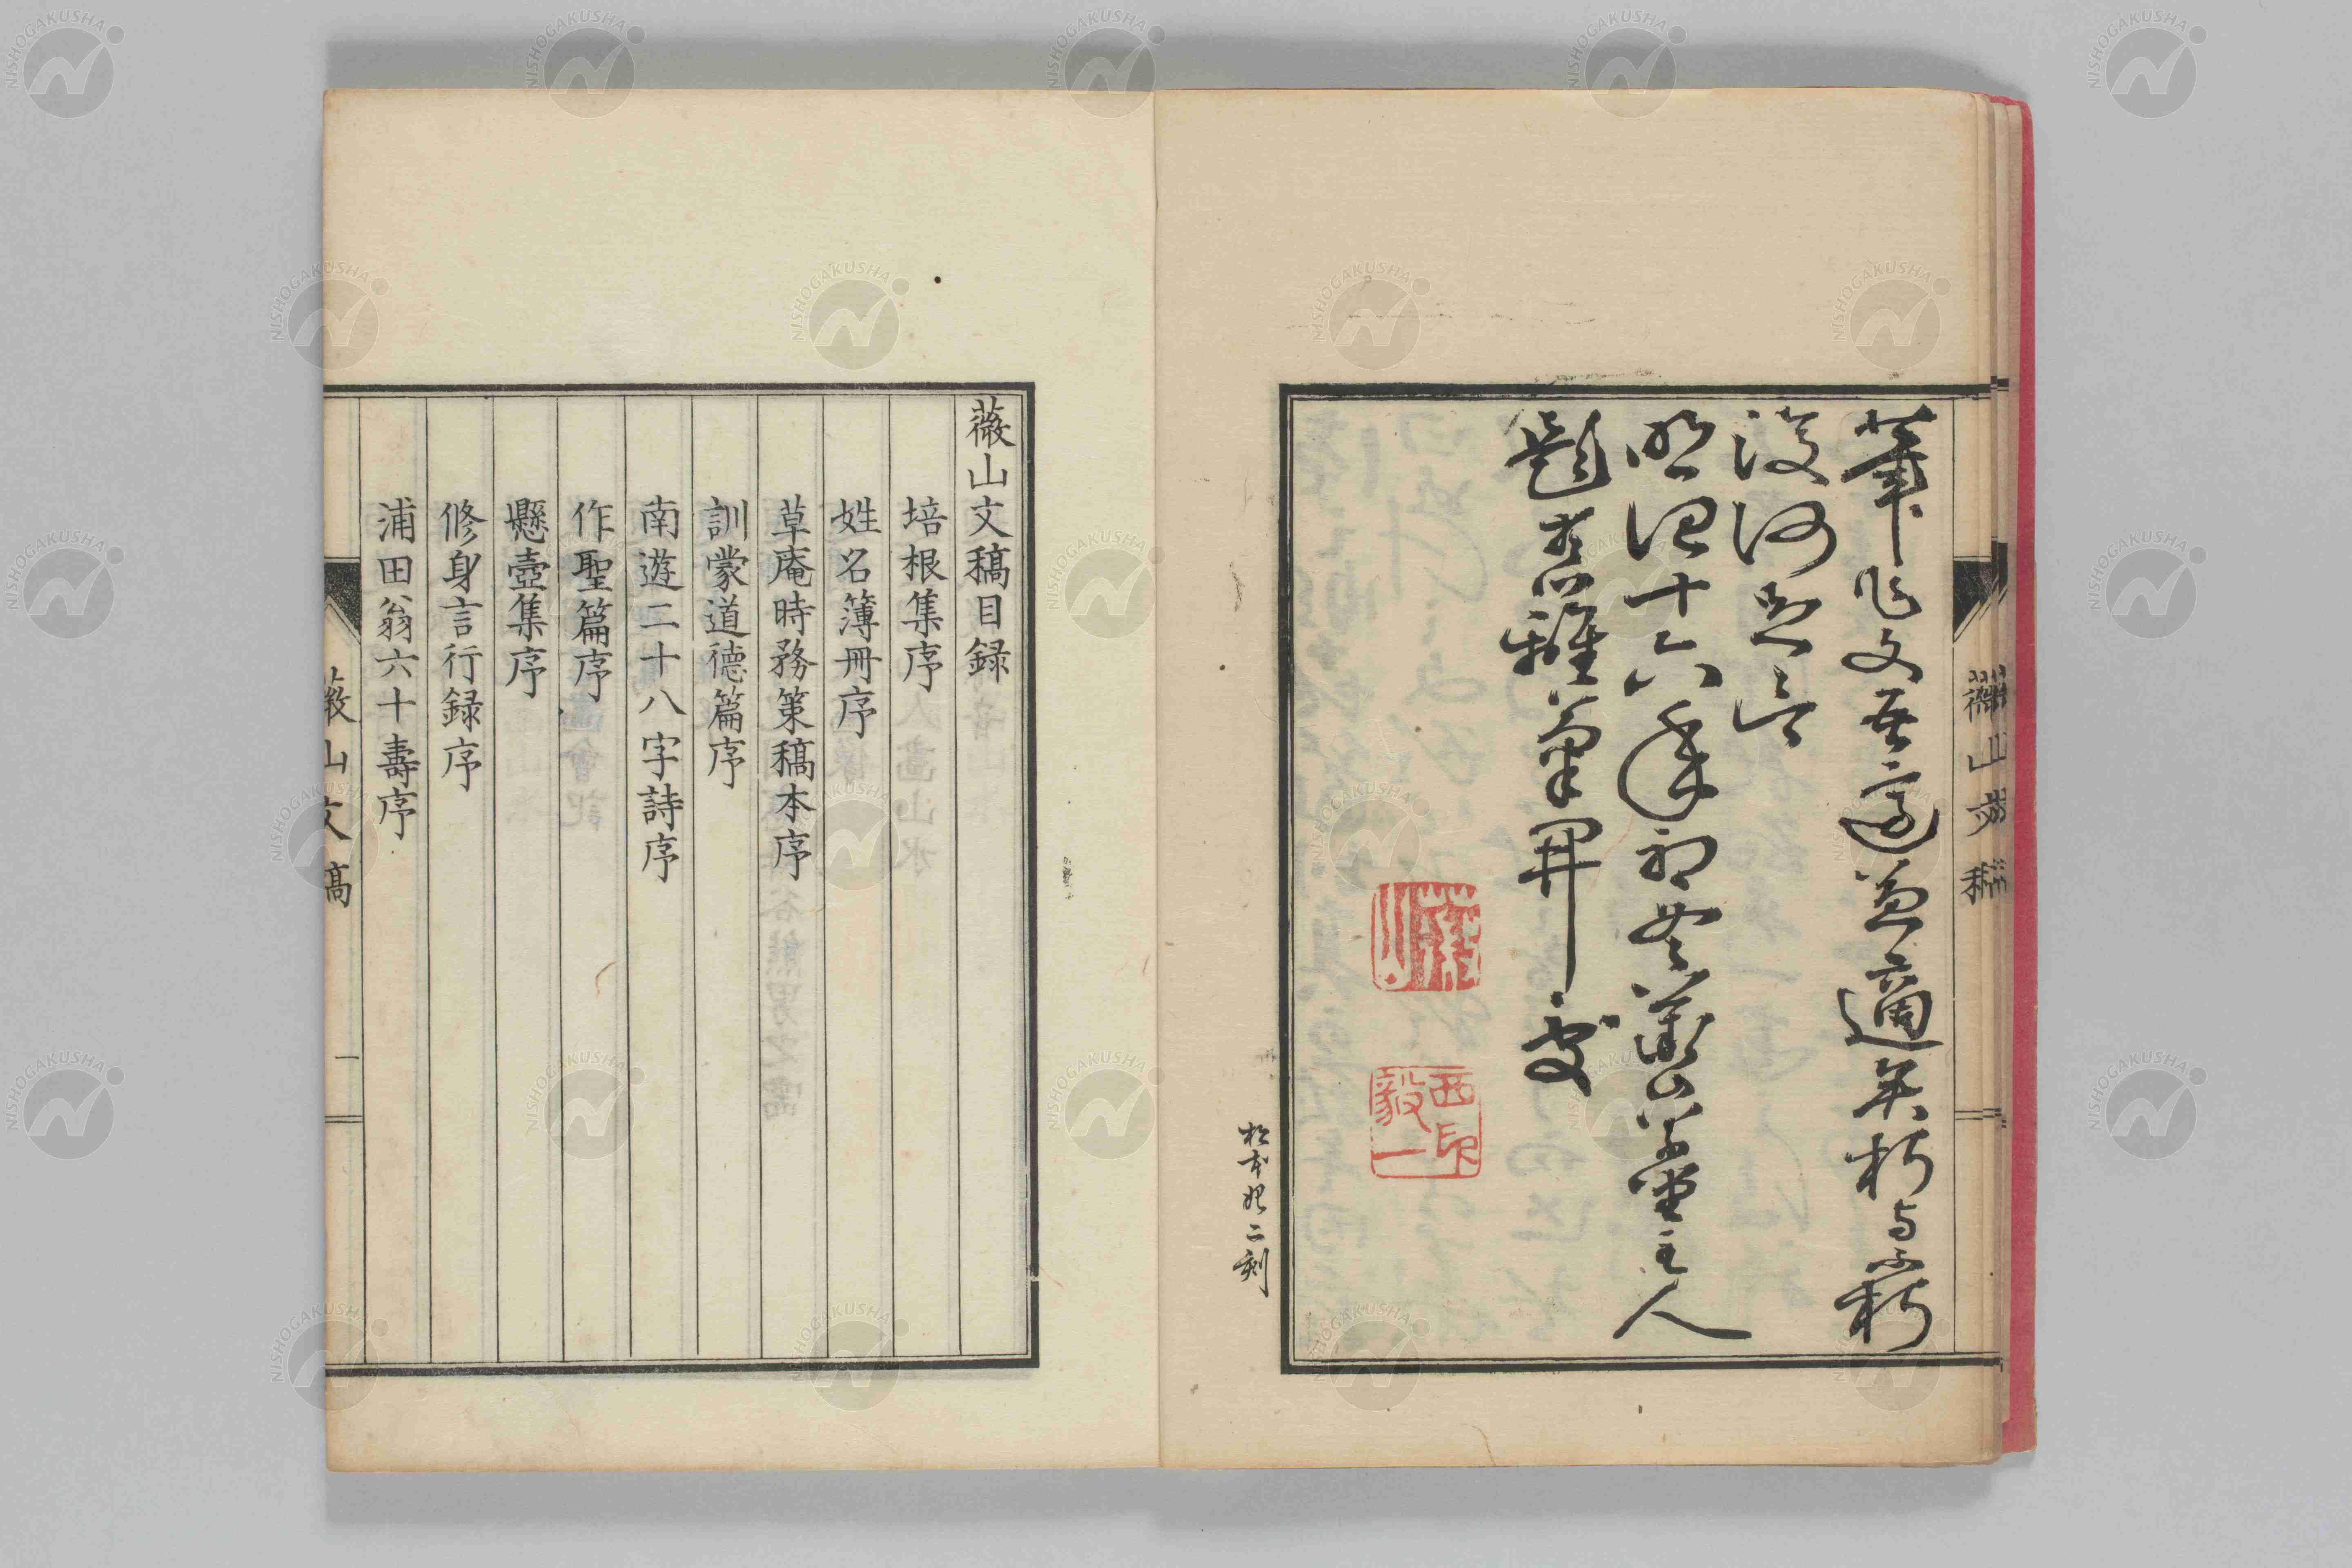 筆作文吾適吾適其朽与不朽
没何足言
明治十六年初冬薇山学堂主人
題於雑草開処
西毅一印
松本昶二刻
薇山文稿
薇山文稿目録
培根集序
姓名簿冊序
草庵時務策稿本序
訓蒙道德篇序
南遊二十八字詩序
作聖篇序
懸壺集序
修身言行録序
浦田翁六十壽序
薇山文稿
一